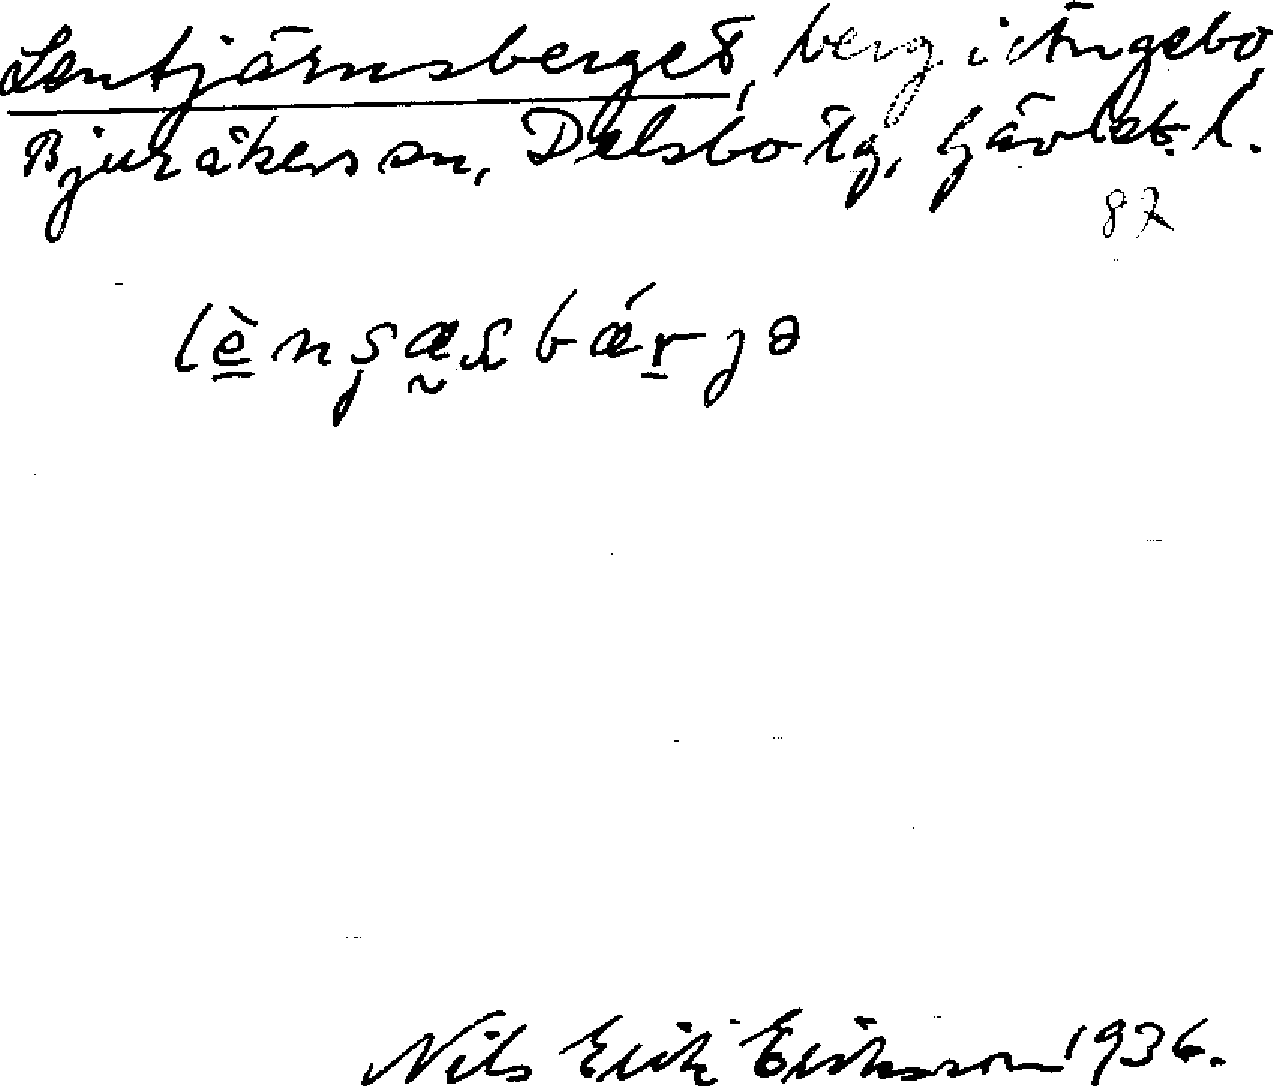 Lentjärnsberget, berg i Ängebo,
Bjuråkers sn, Delsbo tg, Gävleb. l.
87
lènʂæʂbǽrjə
Nils Erik Eriksson 1936.